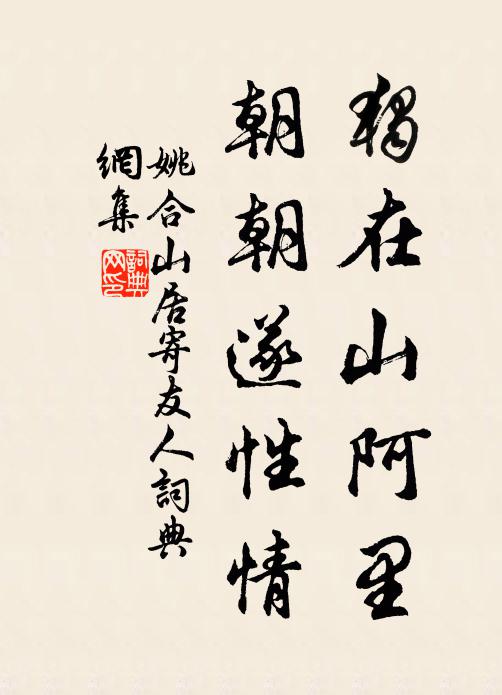 獨在山阿里
朝朝遂性情
姚合山居寄友人詞典
網集
詞典
网印